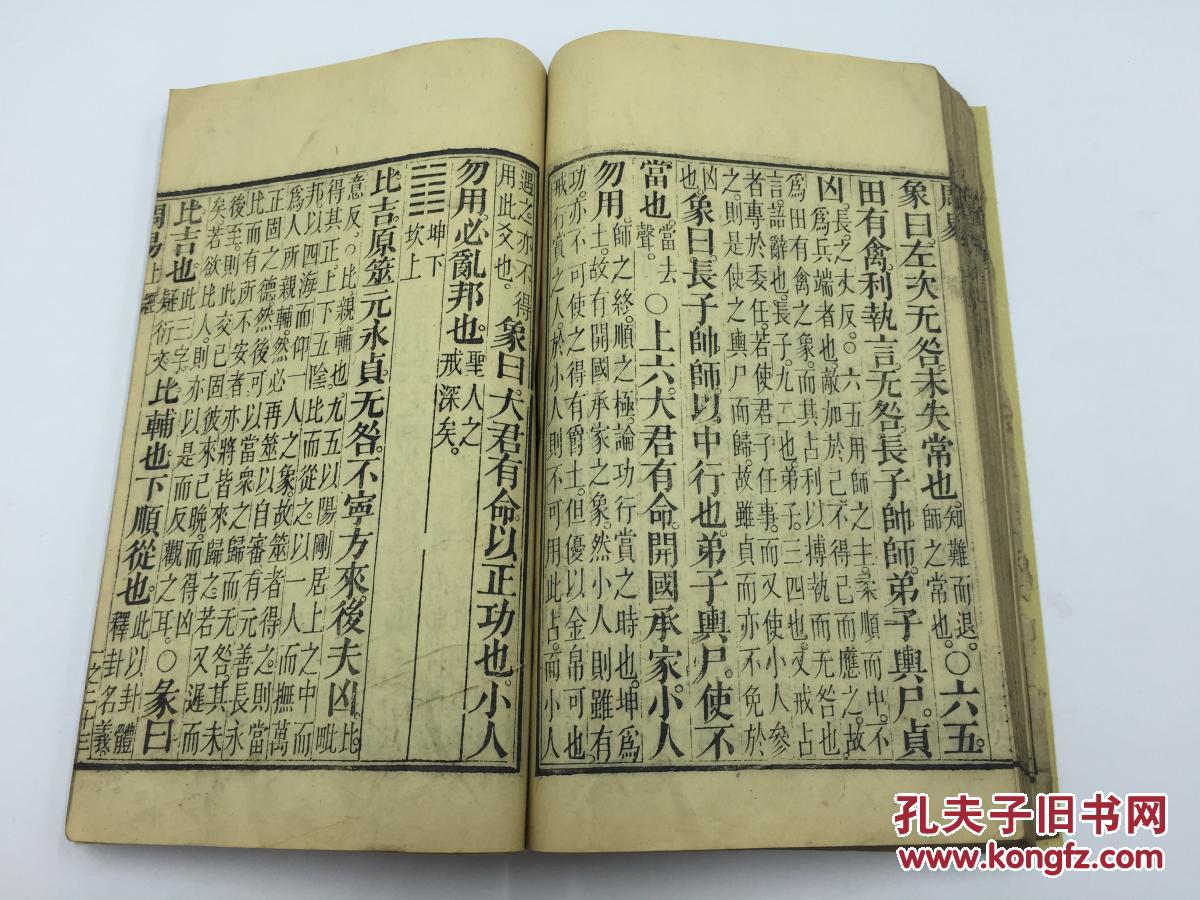 象曰。左次无咎。未失常也。知難而退。師之常也。〇六五。
田有禽。利執言。无咎。長子帥師。弟子輿尸。貞
凶。長。之丈反。〇六五用師之主。柔順而中。不
爲兵端者也。敵加於己。不得已而應之。故
爲田有禽之象。而其占利以搏執而无咎也
言。語辭也。長子。九二也。弟子。三四也。又戒占
者專於委任。若使君子任事。而又使小人參
之。則是使之輿尸而歸。故雖貞而亦不免於
凶也。象曰。長子帥師。以中行也。弟子輿尸。使不
當也。當去聲。〇上六。大君有命。開國承家。小人
勿用。師之終。順之極。論功行賞之時也。坤爲
土。故有開國承家之象。然小人則雖有
功。亦不可使之得有爵土。但優以金帛可也
戒行賞之人。於小人則不可用此占。而小人
遇之。亦不得用此爻也。象曰。大君有命。以正功也。小人
勿用。必亂邦也。聖人之戒深矣。
坤下
坎上
比吉。原筮元永貞。无咎。不寧方來。後夫凶。比。毗
意反。〇比。親輔也。九五以陽剛居上之中而
得其正。上下五陰。比而從之。以一人而撫萬
邦。以四海而仰一人之象。故筮者得之。則當
爲人所親輔。然必再筮以自審。有元善長永
正固之德。然後可以當衆之歸而无咎。其未
比而有所不安者。亦將皆來歸之。若又遲而
後至。則此交已固。彼來已晚。而得凶
矣。若欲比人。則亦以是而反觀之耳。〇彖曰
比吉也。此三字。疑衍文。比輔也。下順從也。此以卦體釋卦名義。
周易上經
一之二十三
周易
孔夫子旧书网
www.kongfz.com